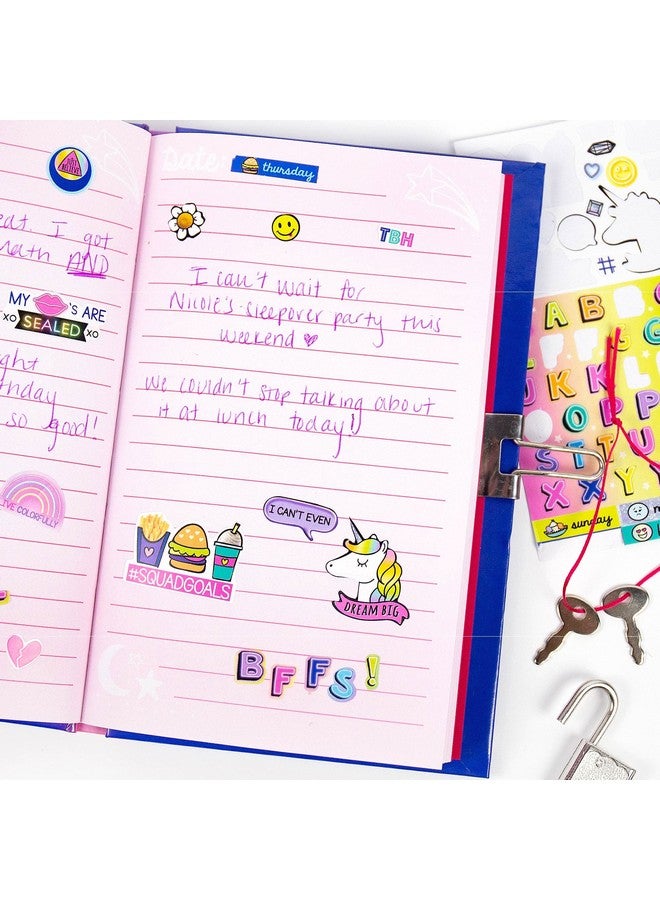 eat. I got
Math AND
MY 'S ARE
XO SEALED XO
ght
thday
so good!
LIVE COLORFULLY
Date: thursday
TBH
I can't wait for
Nicole's sleepover party this
weekend
We couldn't stop talking about
it at lunch today!
I CAN'T EVEN
#SQUADGOALS
DREAM BIG
BFFS!
#
A B
G
K
O P P
S T T U
X X Y
sunday